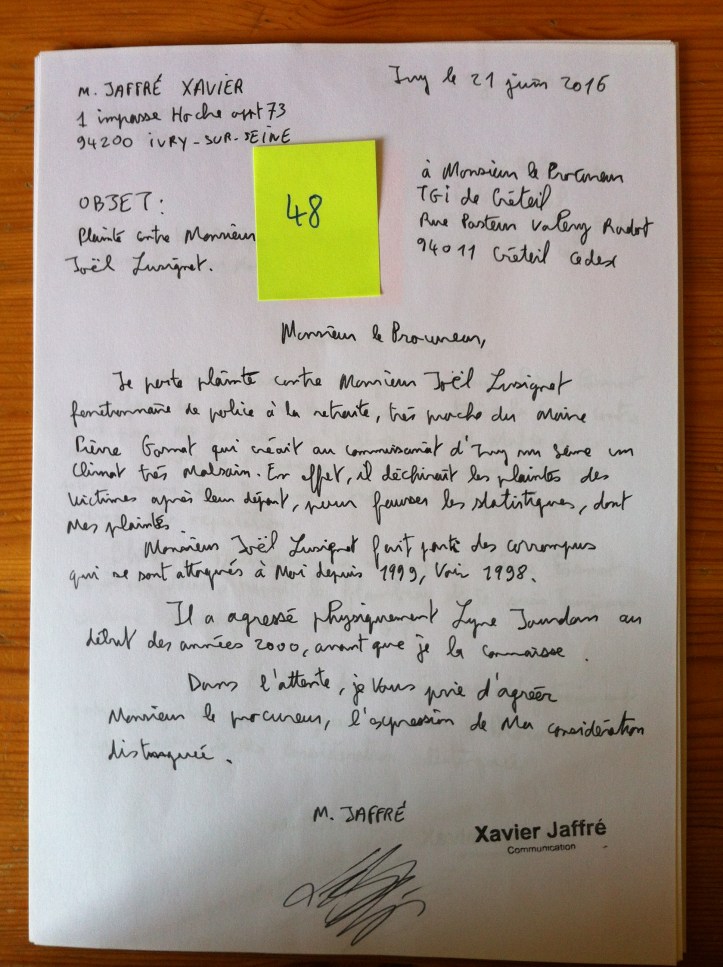 M. JAFFRÉ XAVIER
1 impasse Hoche appt 73
94200 IVRY-SUR-SEINE
Ivry le 21 juin 2016
à Monsieur le Procureur
TGI de Créteil
Rue Pasteur Valléry Radot
94011 Créteil Cedex
OBJET:
Plainte contre Monsieur
Joël Lusignet.
48
Monsieur le Procureur,
Je porte plainte contre Monsieur Joël Lusignet
fonctionnaire de police à la retraite, très proche du Maire
Pierre Gosnat qui créait au commissariat d'Ivry sur Seine un
Climat très Malsain. En effet, il déchirait les plaintes des
Victimes après leur départ, pour fausser les statistiques, dont
Mes plaintes.
Monsieur Joël Lusignet fait partie des corrompus
qui se sont attaqués à Moi depuis 1999, Voir 1998.
Il a agressé physiquement Lyne Jourdan au
début des années 2000, avant que je la connaisse.
Dans l'attente, je Vous prie d'agréer
Monsieur le procureur, l'expression de Ma considération
distinguée.
M. JAFFRÉ
Xavier Jaffré
Communication